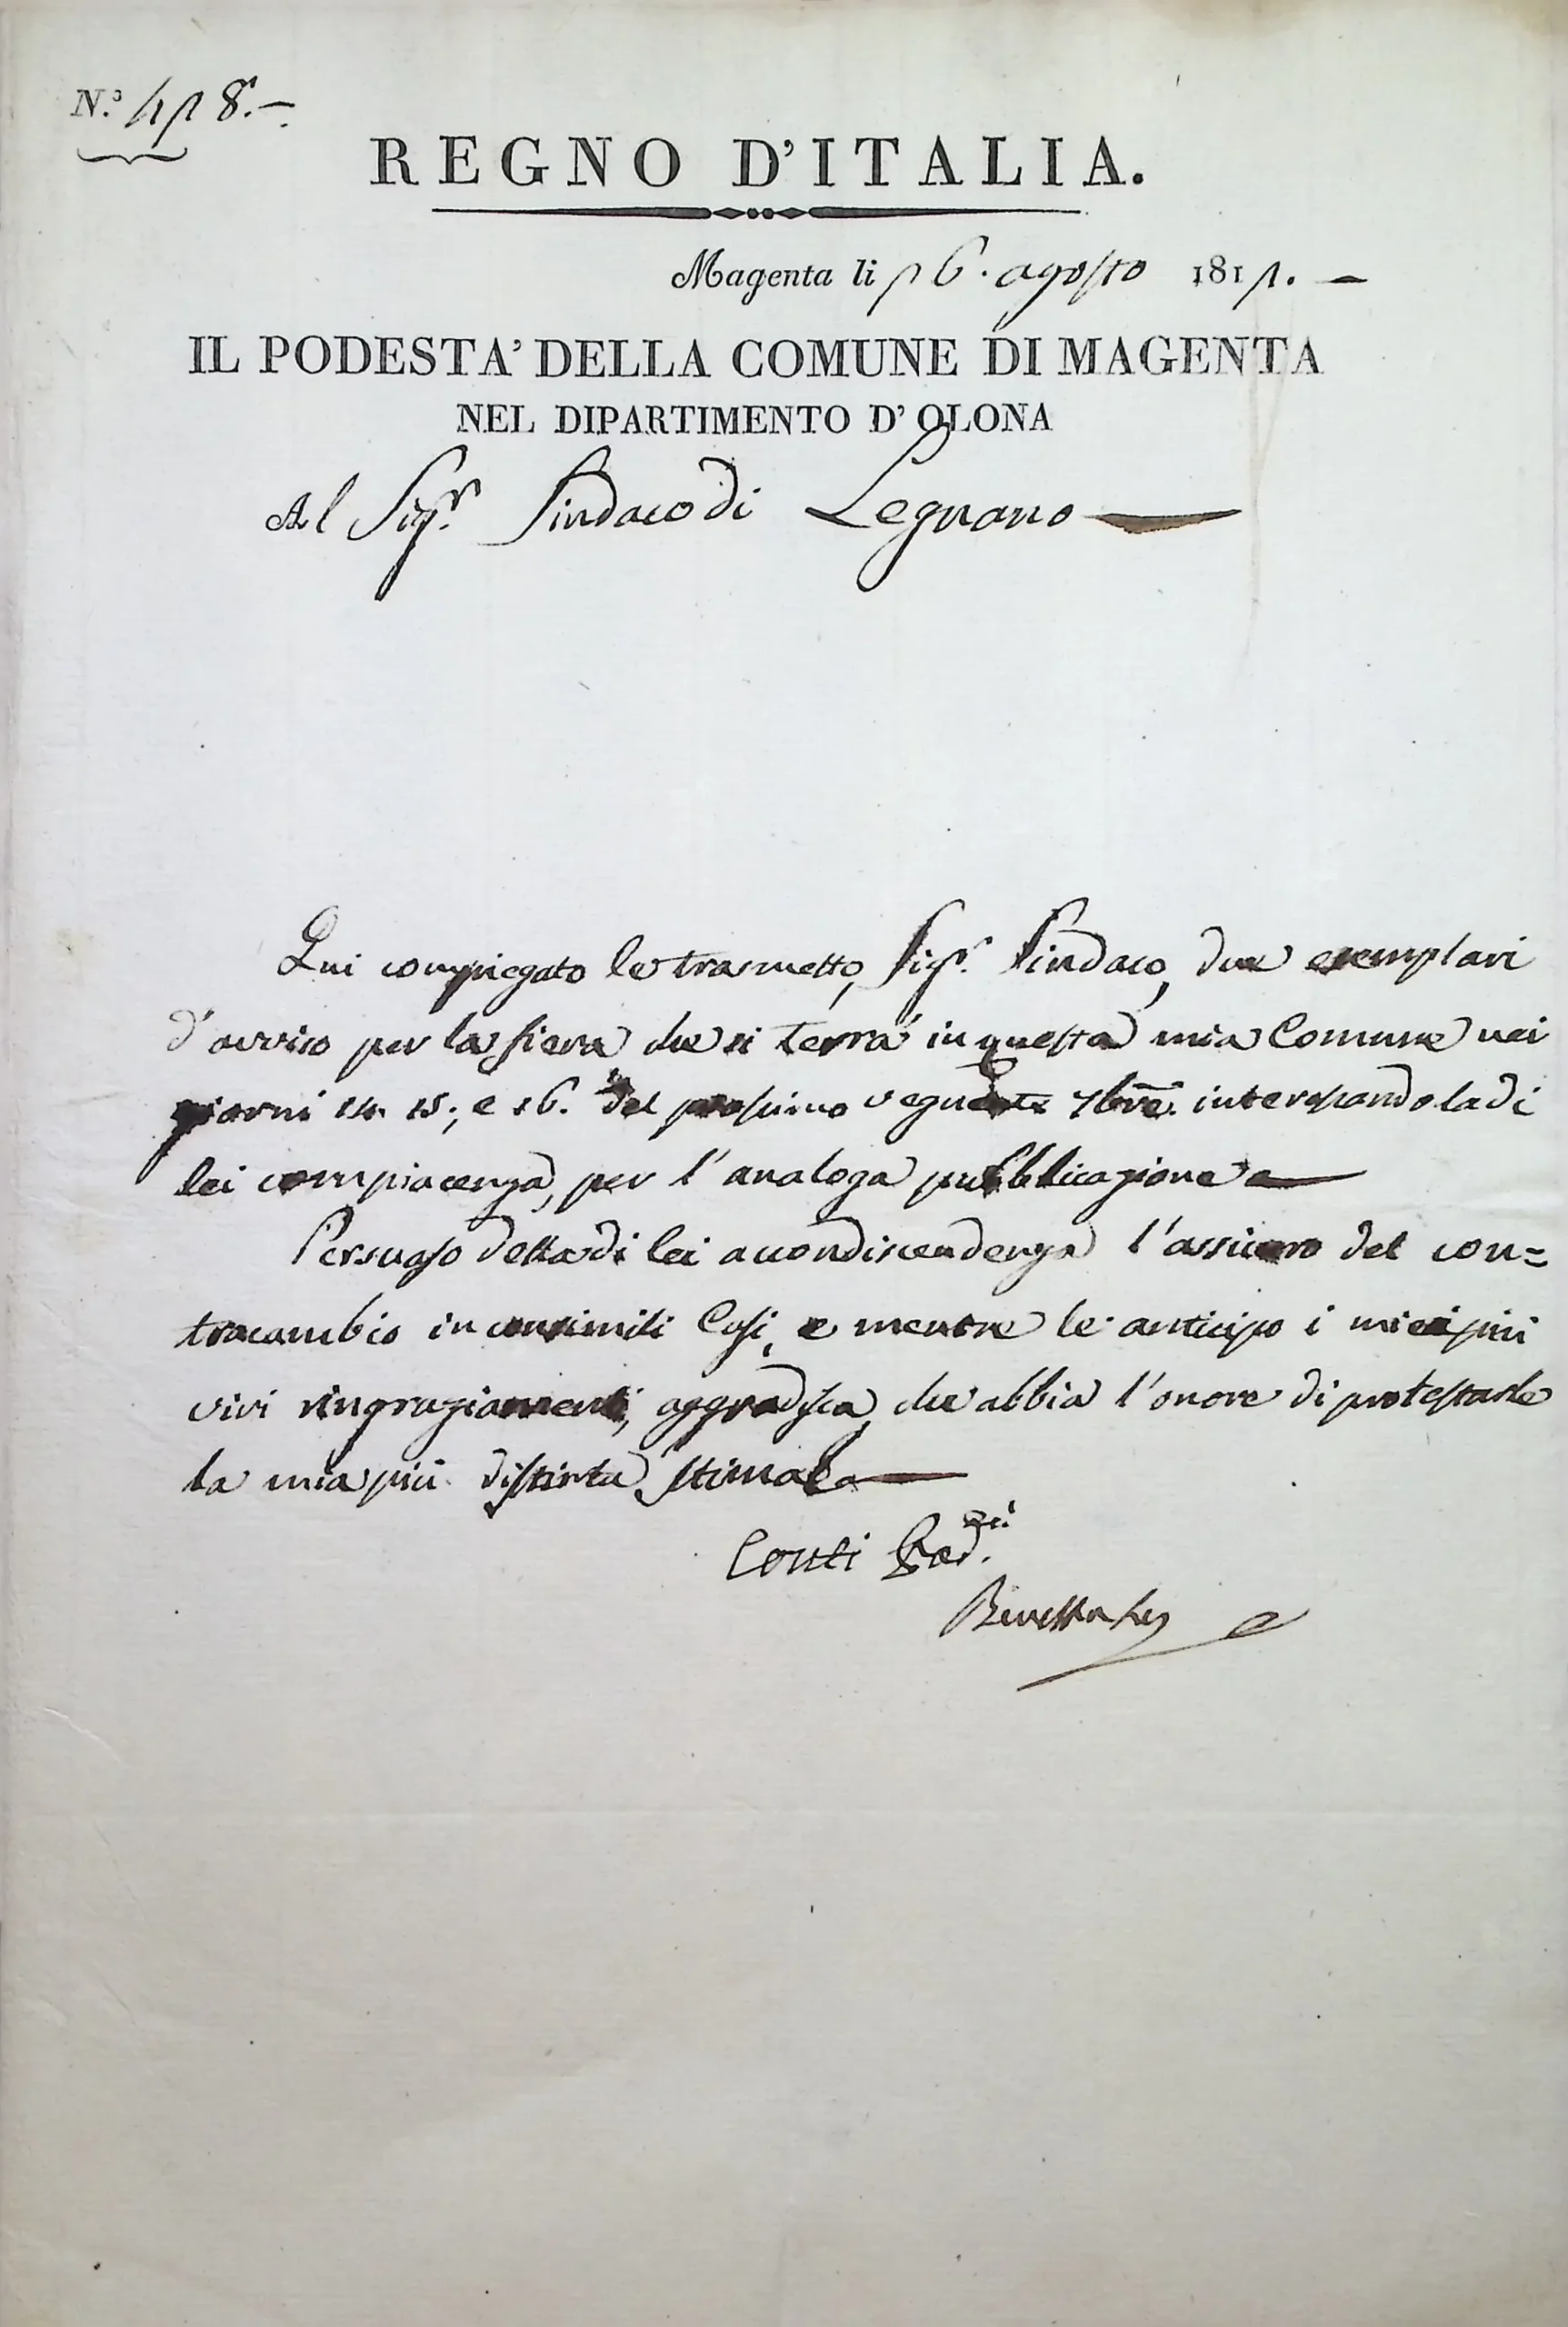 N.º 418.-
REGNO D'ITALIA.
Magenta li 16. agosto 1811. -
IL PODESTA' DELLA COMUNE DI MAGENTA
NEL DIPARTIMENTO D' OLONA
Al Sigr. Sindaco di Legnano
Qui compiegato le trasmetto, Sigr. Sindaco, due esemplari
d'avviso per la fiera che si terrà in questa mia Comune nei
giorni 14. 15; e 16. del prossimo 7bre. interessando la di
lei compiacenza, per l'analoga pubblicazione
Persuaso della di lei accondiscendenza l'assicuro del con=
tracambio in consimili Casi, e mentre le anticipo i miei più
vivi ringraziamenti, aggradisca, che abbia l'onore di protestarle
la mia più distinta stima
Conti